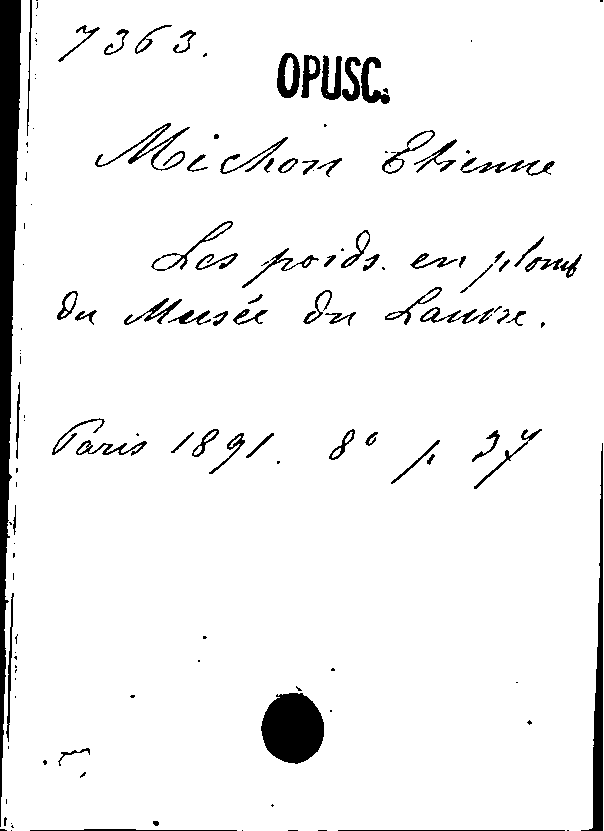 7363.
OPUSC.
Michon Etienne
Les poids en plomb
du Musée du Louvre.
Paris 1891. 8° p. 37